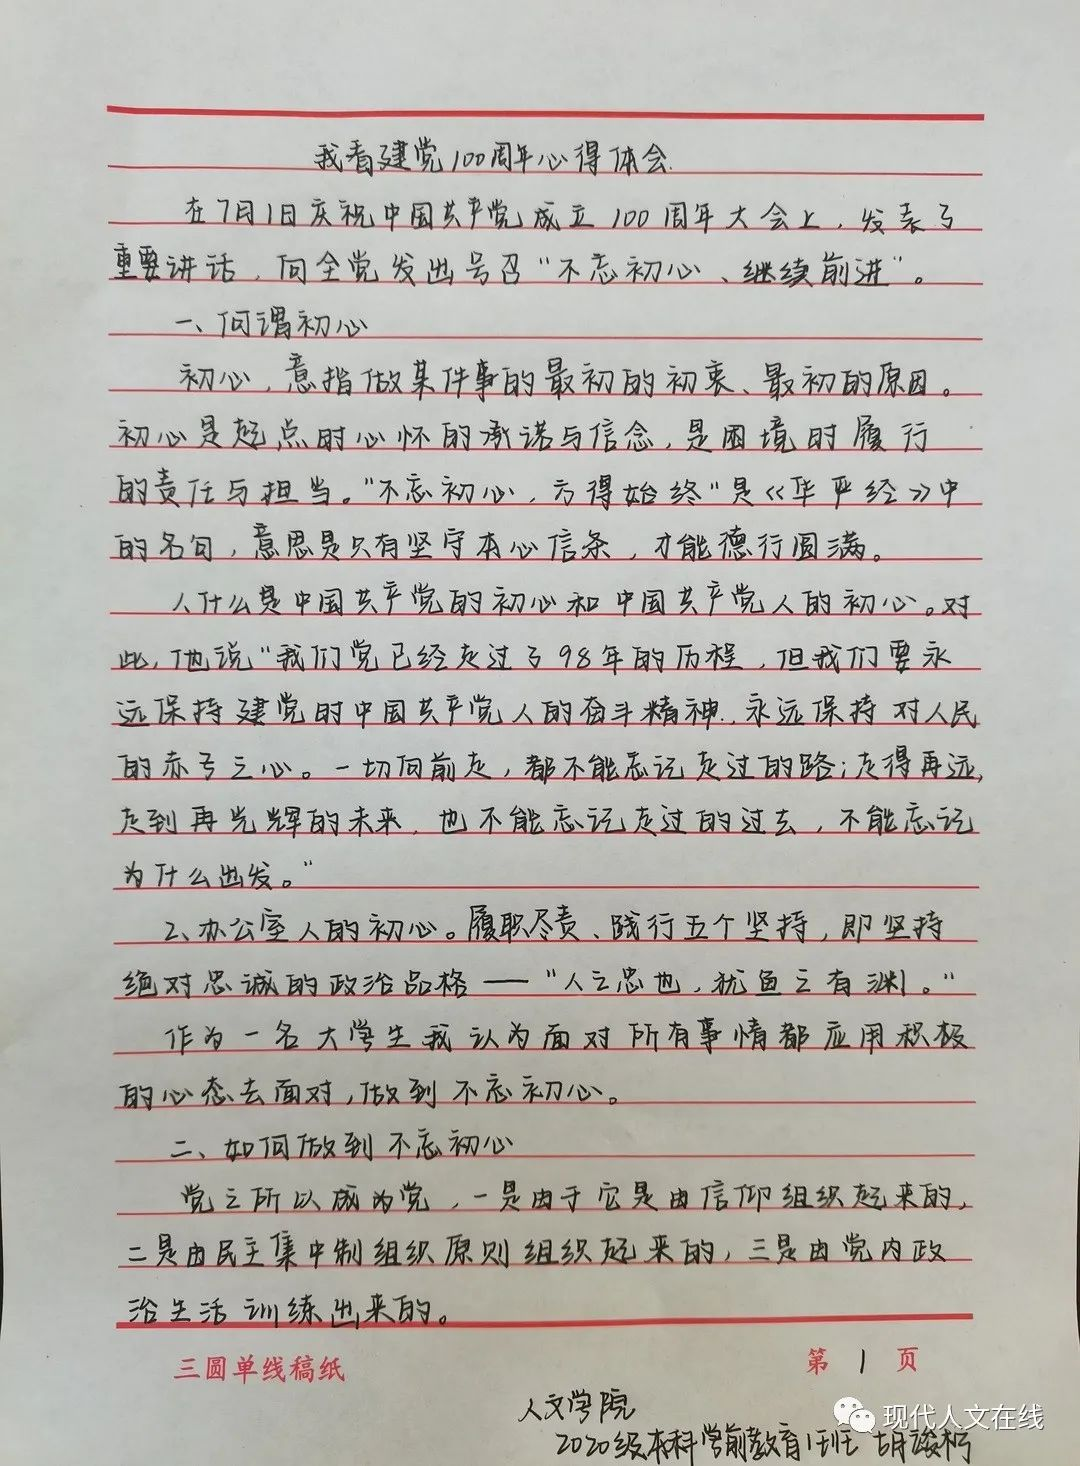 我看建党100周年心得体会.
在7月1日庆祝中国共产党成立100周年大会上，发表了
重要讲话，向全党发出号召“不忘初心、继续前进”。
一、何谓初心
初心，意指做某件事的最初的初衷、最初的原因。
初心是起点时心怀的承诺与信念，是困境时履行
的责任与担当。“不忘初心，方得始终”是《华严经》中
的名句，意思是只有坚守本心信条，才能德行圆满。
1、什么是中国共产党的初心和中国共产党人的初心。对
此，他说“我们党已经走过了98年的历程，但我们要永
远保持建党时中国共产党人的奋斗精神，永远保持对人民
的赤子之心。一切向前走，都不能忘记走过的路；走得再远，
走到再光辉的未来，也不能忘记走过的过去，不能忘记
为什么出发。”
2、办公室人的初心。履职尽责、践行五个坚持，即坚持
绝对忠诚的政治品格——“人之忠也，犹鱼之有渊。”
作为一名大学生我认为面对所有事情都应用积极
的心态去面对，做到不忘初心。
二、如何做到不忘初心
党之所以成为党，一是由于它是由信仰组织起来的，
二是由民主集中制组织原则组织起来的，三是由党内政
治生活训练出来的。
三圆单线稿纸
第1页
人文学院
2020级本科学前教育1班 胡
现代人文在线